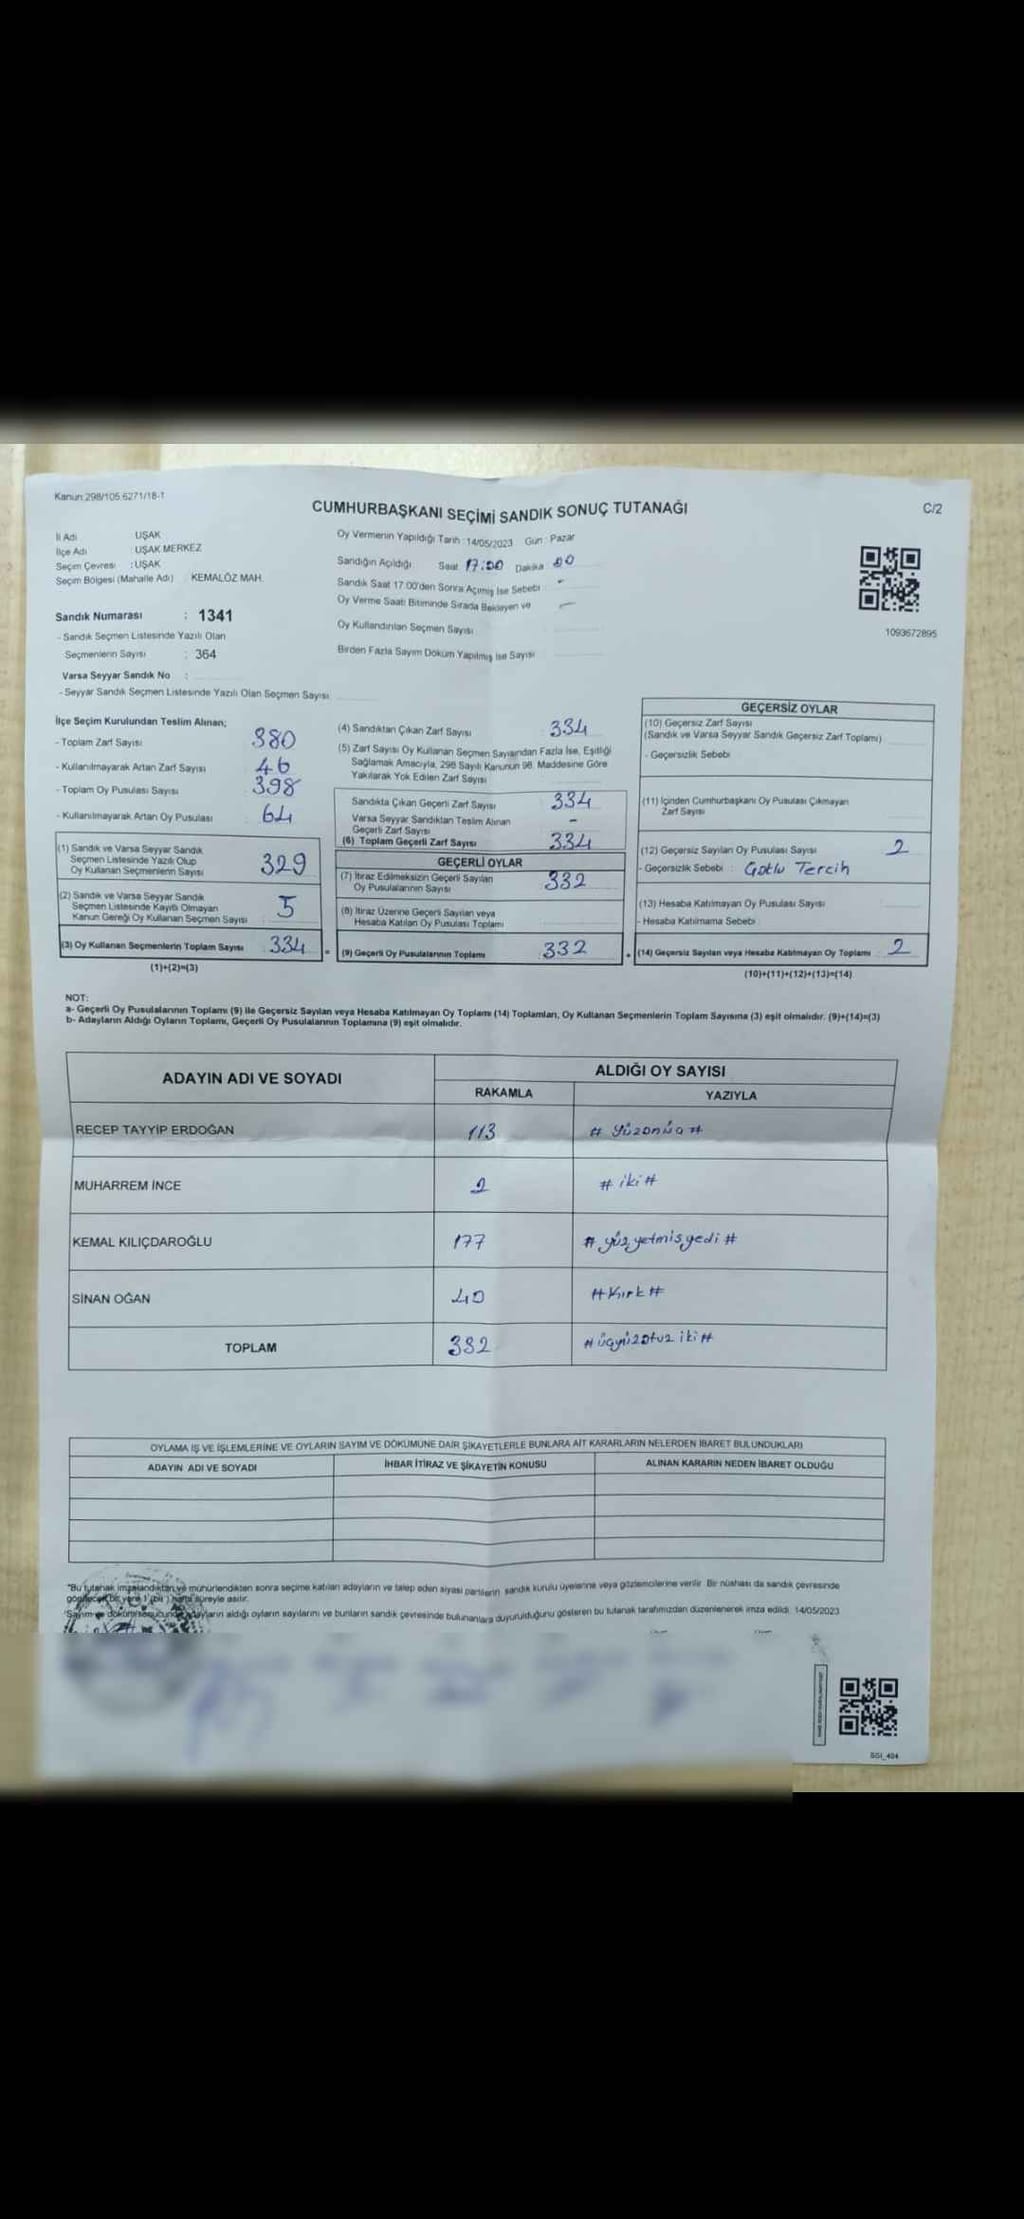 Kanun:298/105.6271/18-1
CUMHURBAŞKANI SEÇİMİ SANDIK SONUÇ TUTANAĞI
C/2
İl Adı : UŞAK
İlçe Adı : UŞAK MERKEZ
Seçim Çevresi : UŞAK
Seçim Bölgesi (Mahalle Adı) : KEMALÖZ MAH.
Sandık Numarası : 1341
- Sandık Seçmen Listesinde Yazılı Olan
Seçmenlerin Sayısı : 364
Varsa Seyyar Sandık No :
- Seyyar Sandık Seçmen Listesinde Yazılı Olan Seçmen Sayısı
Oy Vermenin Yapıldığı Tarih :14/05/2023 Gün : Pazar
Sandığın Açıldığı Saat 17:00 Dakika 00
Sandık Saat 17.00'den Sonra Açımış İse Sebebi : -
Oy Verme Saati Bitiminde Sırada Bekleyen ve -
Oy Kullandırılan Seçmen Sayısı
Birden Fazla Sayım Döküm Yapılmış İse Sayısı
1093672895
İlçe Seçim Kurulundan Teslim Alınan;
- Toplam Zarf Sayısı 380
- Kullanılmayarak Artan Zarf Sayısı 46
- Toplam Oy Pusulası Sayısı 398
- Kullanılmayarak Artan Oy Pusulası 64
(1) Sandık ve Varsa Seyyar Sandık
Seçmen Listesinde Yazılı Olup
Oy Kullanan Seçmenlerin Sayısı 329
(2) Sandık ve Varsa Seyyar Sandık
Seçmen Listesinde Kayıtlı Olmayan
Kanun Gereği Oy Kullanan Seçmen Sayısı 5
(3) Oy Kullanan Seçmenlerin Toplam Sayısı 334
(1)+(2)=(3)
(4) Sandıktan Çıkan Zarf Sayısı 334
(5) Zarf Sayısı Oy Kullanan Seçmen Sayısından Fazla İse, Eşitliği
Sağlamak Amacıyla, 298 Sayılı Kanunun 98. Maddesine Göre
Yakılarak Yok Edilen Zarf Sayısı
Sandıkta Çıkan Geçerli Zarf Sayısı 334
Varsa Seyyar Sandıktan Teslim Alınan
Geçerli Zarf Sayısı -
(6) Toplam Geçerli Zarf Sayısı 334
GEÇERLİ OYLAR
(7) İtiraz Edilmeksizin Geçerli Sayılan
Oy Pusulalarının Sayısı 332
(8) İtiraz Üzerine Geçerli Sayılan veya
Hesaba Katılan Oy Pusulası Toplamı
= (9) Geçerli Oy Pusulalarının Toplamı 332
GEÇERSİZ OYLAR
(10) Geçersiz Zarf Sayısı
(Sandık ve Varsa Seyyar Sandık Geçersiz Zarf Toplamı)
- Geçersizlik Sebebi
(11) İçinden Cumhurbaşkanı Oy Pusulası Çıkmayan
Zarf Sayısı
(12) Geçersiz Sayılan Oy Pusulası Sayısı 2
- Geçersizlik Sebebi : Çoklu Tercih
(13) Hesaba Katılmayan Oy Pusulası Sayısı
- Hesaba Katılmama Sebebi
+ (14) Geçersiz Sayılan veya Hesaba Katılmayan Oy Toplamı 2
(10)+(11)+(12)+(13)=(14)
NOT:
a- Geçerli Oy Pusulalarının Toplamı (9) ile Geçersiz Sayılan veya Hesaba Katılmayan Oy Toplamı (14) Toplamları, Oy Kullanan Seçmenlerin Toplam Sayısına (3) eşit olmalıdır. (9)+(14)=(3)
b- Adayların Aldığı Oyların Toplamı, Geçerli Oy Pusulalarının Toplamına (9) eşit olmalıdır.
ADAYIN ADI VE SOYADI
ALDIĞI OY SAYISI
RAKAMLA YAZIYLA
RECEP TAYYİP ERDOĞAN 113 # yüzonüç #
MUHARREM İNCE 2 # iki #
KEMAL KILIÇDAROĞLU 177 # yüzyetmişyedi #
SİNAN OĞAN 40 # Kırk #
TOPLAM 332 # üçyüzotuz iki #
OYLAMA İŞ VE İŞLEMLERİNE VE OYLARIN SAYIM VE DÖKÜMÜNE DAİR ŞİKAYETLERLE BUNLARA AİT KARARLARIN NELERDEN İBARET BULUNDUKLARI
ADAYIN ADI VE SOYADI
İHBAR İTİRAZ VE ŞİKAYETİN KONUSU
ALINAN KARARIN NEDEN İBARET OLDUĞU
"Bu tutanak imzalandıktan ve mühürlendikten sonra seçime katılan adayların ve talep eden siyasi partilerin sandık kurulu üyelerine veya gözlemcilerine verilir. Bir nüshası da sandık çevresinde
görülecek bir yere 1 (bir) hafta süreyle asılır.
Sayım ve dökümü sonucunda adayların aldığı oyların sayılarını ve bunların sandık çevresinde bulunanlara duyurulduğunu gösteren bu tutanak tarafımızdan düzenlenerek imza edildi. 14/05/2023